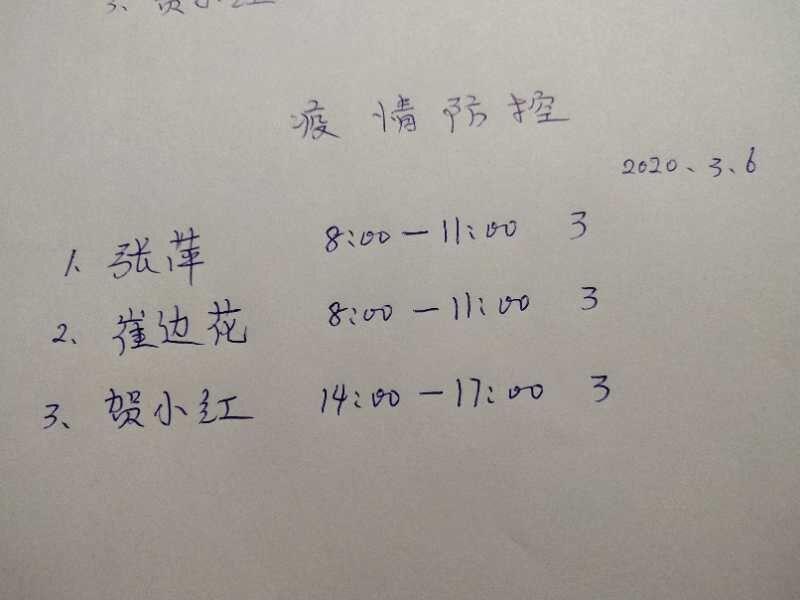 3、贺小红
疫情防控
2020、3、6
1、张萍 8:00－11:00 3
2、崔边花 8:00－11:00 3
3、贺小红 14:00－17:00 3